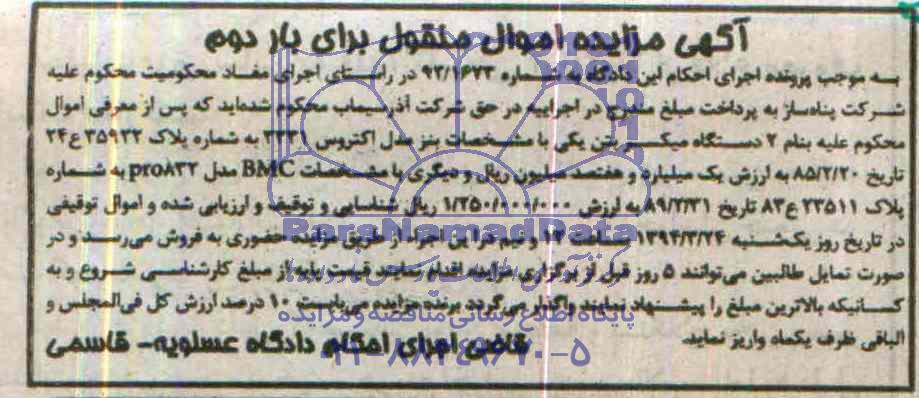 آگهی مزایده اموال منقول برای بار دوم
به موجب پرونده اجرای احکام این دادگاه به شماره ۹۳/۱۶۷۳ در راستای اجرای مفاد محکومیت محکوم علیه
شرکت پناه‌ساز به پرداخت مبلغ مندرج در اجراییه در حق شرکت آذرسیماب محکوم شده‌اید که پس از معرفی اموال
محکوم علیه بنام ۲ دستگاه میکسر بتن یکی با مشخصات بنز مدل اکتروس ۳۳۳۱ به شماره پلاک ۳۵۹۳۲ع۲۴
تاریخ ۸۵/۲/۲۰ به ارزش یک میلیارد و هفتصد میلیون ریال و دیگری با مشخصات BMC مدل pro۸۳۲ به شماره
پلاک ۲۳۵۱۱ ع۸۳ تاریخ ۸۹/۲/۳۱ به ارزش ۱/۲۵۰/۰۰۰/۰۰۰ ریال شناسایی و توقیف و ارزیابی شده و اموال توقیفی
در تاریخ روز یکشنبه ۱۳۹۴/۳/۲۴ ساعت ۱۲ و نیم در این اجراء از طریق مزایده حضوری به فروش می‌رسد و در
صورت تمایل طالبین می‌توانند ۵ روز قبل از برگزاری مزایده اقدام نمایند قیمت پایه از مبلغ کارشناسی شروع و به
کسانیکه بالاترین مبلغ را پیشنهاد نمایند واگذار می‌گردد برنده مزایده می‌بایست ۱۰ درصد ارزش کل فی‌المجلس و
الباقی ظرف یکماه واریز نماید.
قاضی اجرای احکام دادگاه عسلویه- قاسمی
ParsNamadData
پایگاه اطلاع رسانی مناقصه و مزایده
۰۲۱-۸۸۳۴۹۶۷۰-۵